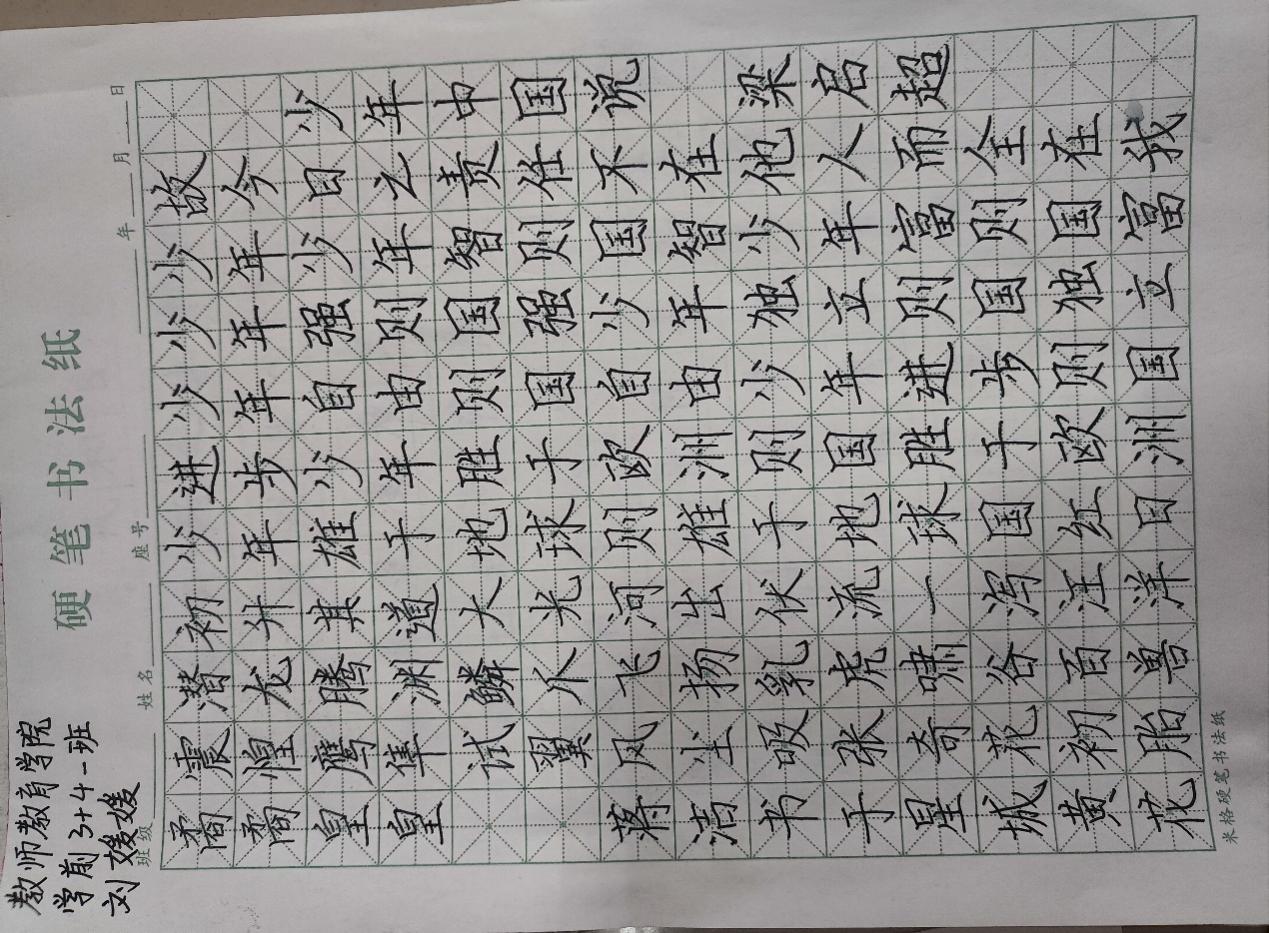 教师教育学院
学前3+4一班
刘媛媛
硬笔书法纸
班级 姓名 座号 年 月 日
少年中国说 梁启超
故今日之责任不在他人而全在我
少年少年智则国智少年富则国富
少年强则国强少年独立则国独立
少年自由则国自由少年进步则国
进步少年胜于欧洲则国胜于欧洲
少年雄于地球则雄于地球国红日
初升其道大光河出伏流一泻汪洋
潜龙腾渊鳞爪飞扬乳虎啸谷百兽
震惶鹰隼试翼风尘吸张奇花初胎
矞矞皇皇 蒋洁书于星城黄花
米格硬笔书法纸